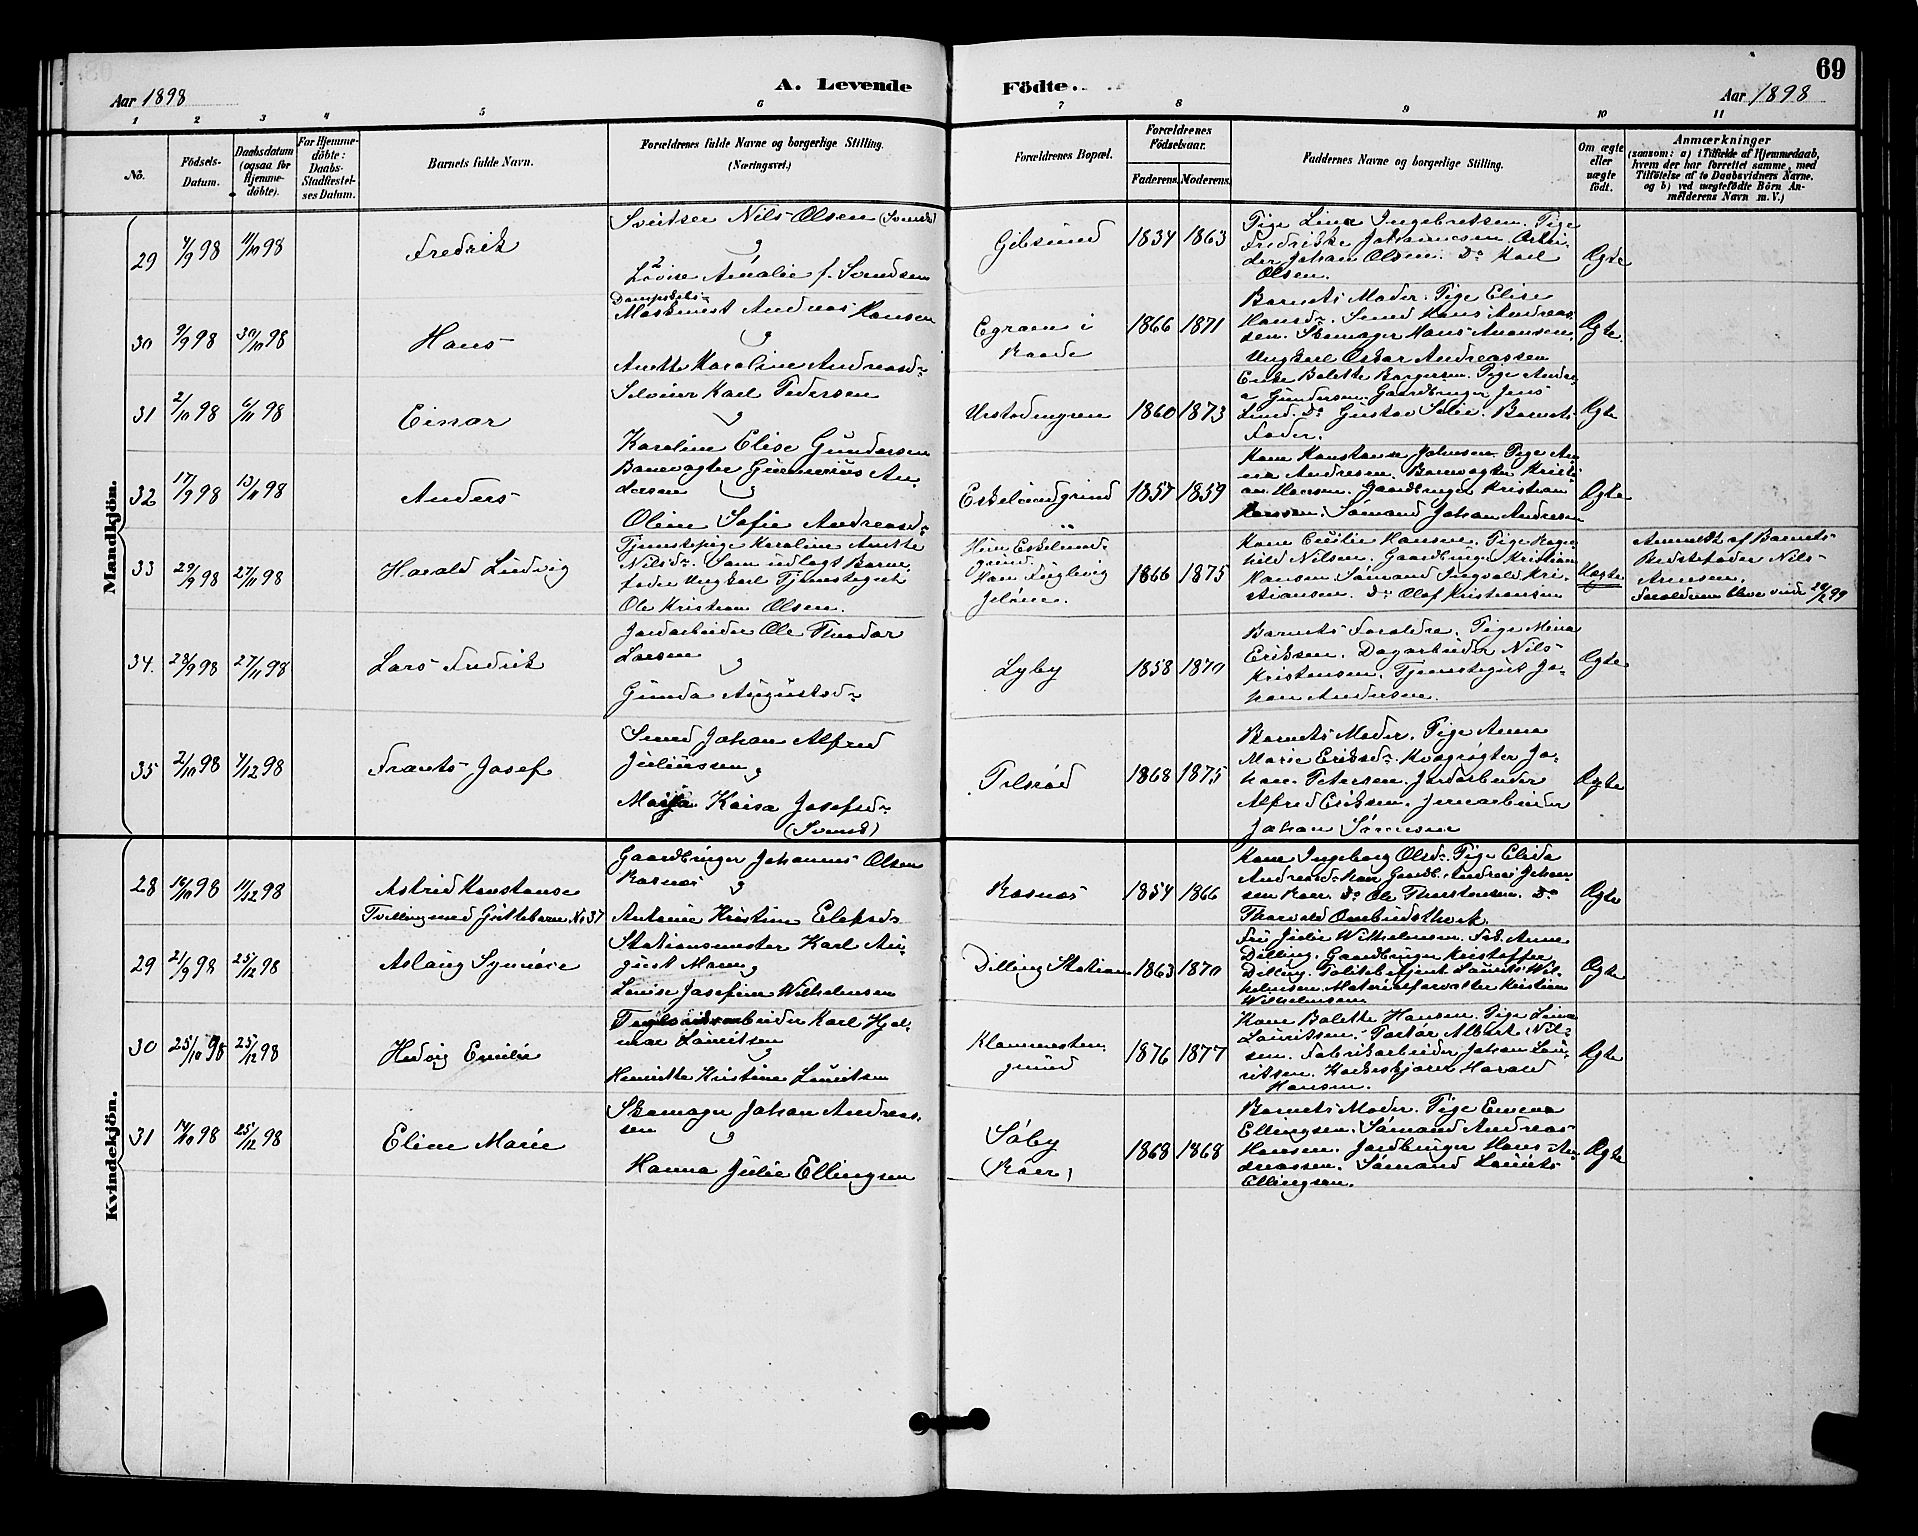 69
Aar 1898
A. Levende
Födte.
Aar 1898
1 2 3 4 5 6 7 8 9 10 11
No.
Födsels-
Datum.
Daabsdatum
(ogsaa for
Hjemme-
döbte).
For Hjemme-
döbte:
Daabs-
Stadfæstel-
ses Datum.
Barnets fulde Navn.
Forældrenes fulde Navne og borgerlige Stilling.
(Næringsvei.)
Forældrenes Bopæl.
Forældrenes
Födselsaar.
Faderens. Moderens.
Faddernes Navne og borgerlige Stilling.
Om ægte
eller
uægte
födt.
Anmærkninger
(saasom: a) i Tilfælde af Hjemmedaab,
hvem der har forrettet samme, med
Tilföielse af to Daabsvidners Navne.
og b) ved uægtefödte Börn An-
melderens Navn m. V.)
Mandkjön.
29
4/9 98
9/10 98
Fredrik
Sveitser Nils Olsen (Svensk)
og
Lovise Amalie f. Svendsen
Gibsund
1834 1863
Tige Lina Ingebretsen. Pige
Fredrikke Johannesen. Arbei-
der Johan Olsen. Do Karl
Olsen.
Ægte
30
9/9 98
30/10 98
Hans
Dampskibs-
Maskinist Andreas Hansen
og
Anette Karoline Andreasdr
Egram i
Raade
1866 1871
Barnets Moder. Pige Elise
Hansdr. Smed Hans Andreas-
sen. Skomager Hans Anansen.
Ungkarl Oskar Andreassen
Ægte
31
2/10 98
6/11 98
Einar
Karl Pedersen
og
Karoline Elise Gundersen
1860 1873
Enke Bolette Borgersen. Pige Andre-
a Gundersen. Gaardbruger Jens
Lund. Do Gustav Solie. Barnets
Fader.
Ægte
32
17/9 98
13/11 98
Anders
Banevogter Gunnerius An-
dersen og
Oline Sofie Andreasdr
Eskelundgrind
1857 1859
Kone Konstanse Johnsen. Pige An-
na Andresen. Banevogter Kristi-
an Hansen. Gaardbruger Kristian
Hansen. Sømand Johan Andresen
Ægte
33
29/9 98
27/11 98
Harald Ludvig
Tjenestepige Karoline Anette
Nilsdr. Som udlagt Barne-
fader Ungkarl Tjenestegut
Ole Kristian Olsen.
Hun Eskelund-
grind.
Han Fuglevig
Jeløen.
1866 1875
Kone Emilie Hansen. Pige Ragn-
hild Nilsen. Gaardbruger Kristian
Hansen. Sømand Ingvald Kri-
stiansen. Do Olaf Kristiansen
Uægte
Anmeldt af Barnets
Bedstefader Nils
Arnesen.
Forældrene blev viede 24/2 99
34.
28/9 98
27/11 98
Lars Fredrik
Jordarbeider Ole Theodor
Larsen
og
Gunda Augustsdr
Lyby
1858 1870
Barnets Forældre. Pige Mina
Eriksen. Dagarbeider Nils
Kristensen. Tjenestegut Jo-
han Andersen.
Ægte
35
2/10 98
4/12 98
Frants Josef
Smed Johan Alfred
Juliussen og
Maja Kaisa Josefsdr
(Svensk)
1868 1875
Barnets Moder. Pige Anna
Marie Eriksdr. Kvægrøgter Jo-
han Petersen. Jordarbeider
Alfred Eriksen. Jernarbeider
Johan Sørensen
Ægte
Kvindekjön.
28
16/10 98
11/12 98
Astrid Konstanse
Tvilling med Guttebarn No 37
Gaardbruger Johannes Olsen
Rosnes og
Antonie Kristine Elefsdr
Rosnes
1854 1866
Kone Ingeborg Olsdr. Pige Elida
Andreasdr. Gaardb. Andreas Johan-
sen Roer. Do Ole Thorstensen. Do
Thorvald Ombudstvedt
Ægte
29
21/9 98
25/12 98
Aslaug Synnøve
Stationsmester Karl Au-
gust Mamen og
Louise Josefine Wilhelmsen
Dilling Station
1863 1870
Fru Julie Wilhelmsen. Frk. Anne
Dilling. Gaardbruger Kristoffer
Dilling. Politibetjent Lauritz Wil-
helmsen. Materialforvalter Kristian
Wilhelmsen
Ægte
30
25/10 98
25/12 98
Hedvig Emilie
Teglværksarbeider Karl Hjal-
mar Lauritsen
og
Henriette Kristine Lauritsen
Klommesten-
grind
1876 1877
Kone Bolette Hansen. Pige Lina
Lauritsen. Partør Albert Nil-
sen. Fabrikarbeider Johan Lau-
ritsen. Harald
Hansen.
Ægte
31
14/10 98
25/12 98
Eline Marie
Skomager Johan Andreas-
sen
og
Hanna Julie Ellingsen
Søby
(Roer)
1868 1868
Barnets Moder. Pige Emma
Ellingsen. Sømand Andreas
Hansen. Jordbruger Hans An-
dreassen. Sømand Lauritz
Ellingsen.
Ægte